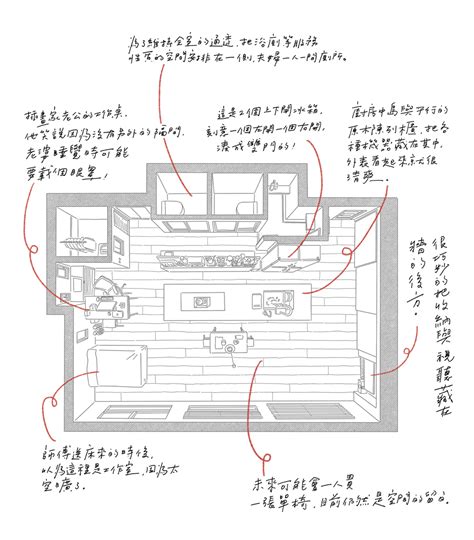 為了維持全室的通透，把浴廁等服務
性質的空間安排在一側，夫婦一人一間廁所。
插畫家老公的工作桌。
他笑說因為沒有另外的隔間，
老婆睡覺時可能
要戴個眼罩！
這是2個上下開冰箱，
刻意一個左開一個右開，
湊成雙門的！
廚房中島與平行的
原木陳列櫃，把各
種機器藏在其中，
外表看起來就很
清爽。
很巧妙的把收納與視聽藏在
牆的後方。
師傅進床來的時候，
以為這裡是工作室，因為太
空曠了。
未來可能會一人買
一張單椅，目前仍然是空間的留白。